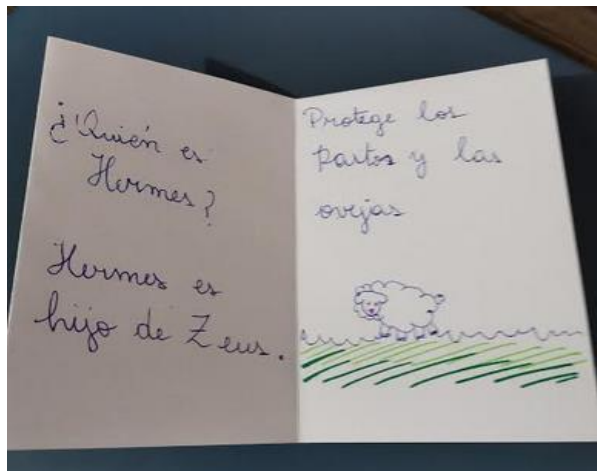 ¿Quién es
Hermes?
Hermes es
hijo de Zeus.
Protege los
partos y las
ovejas